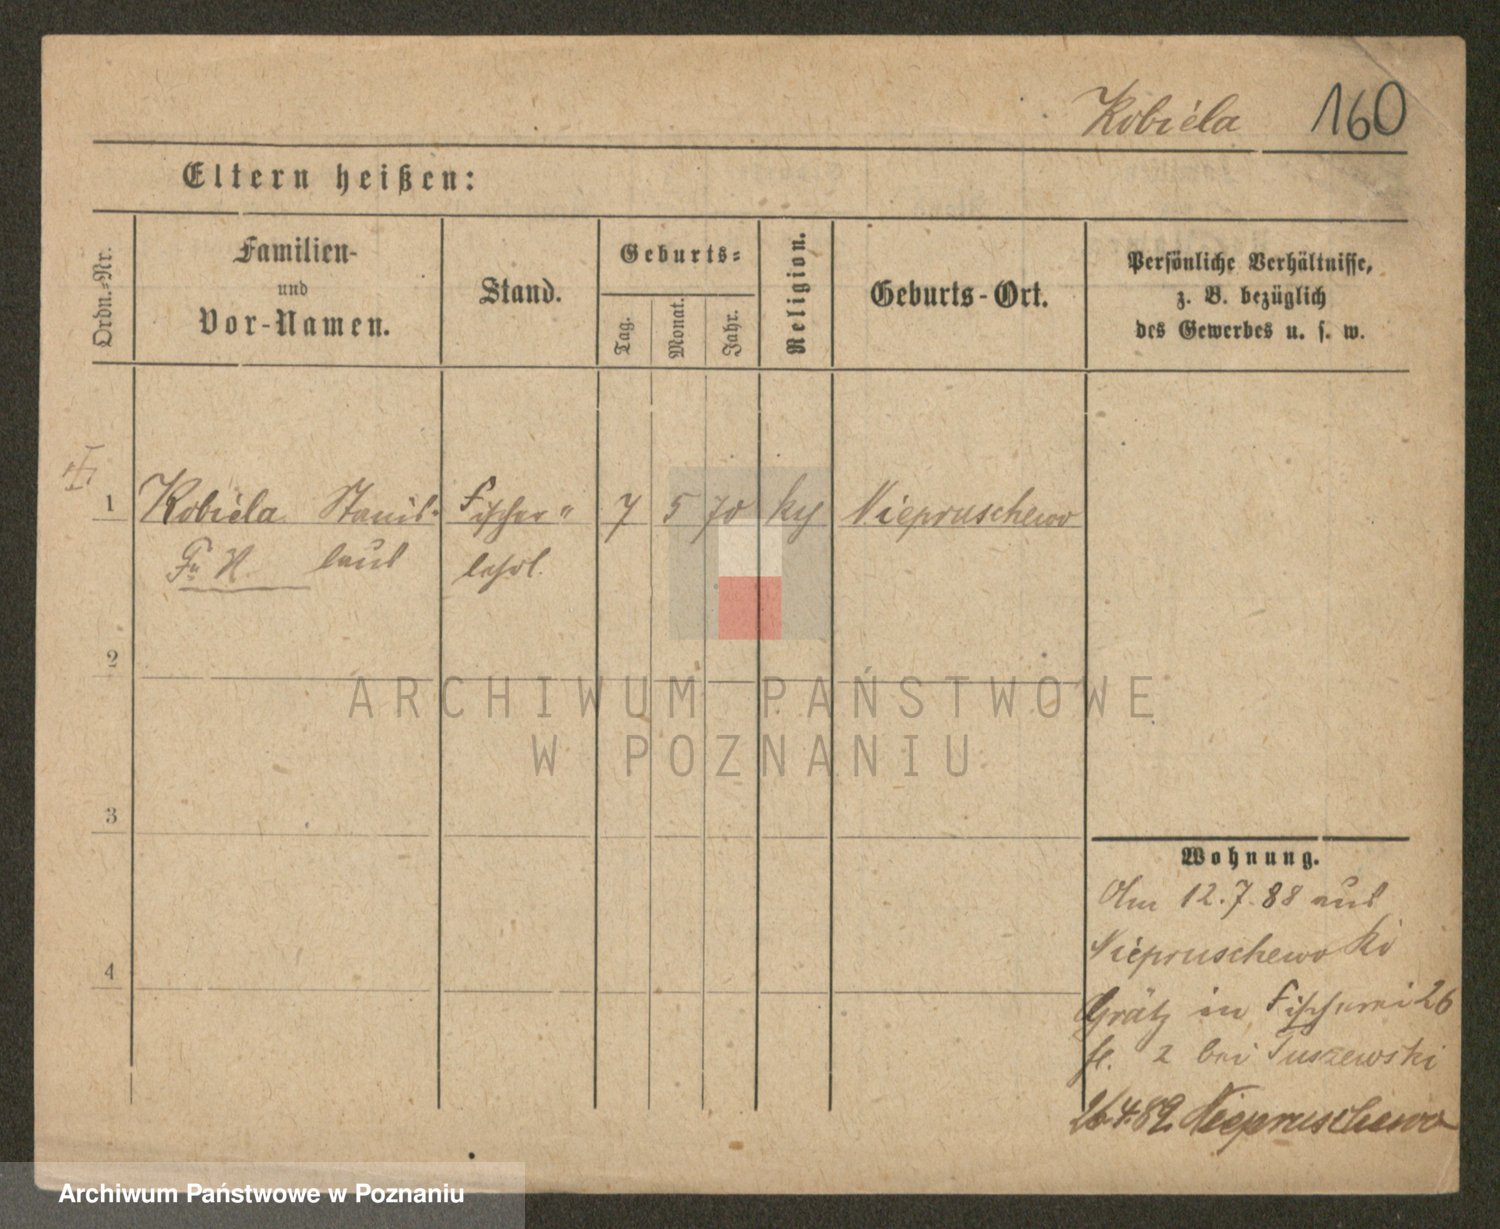 Kobiela 160
Eltern heißen:
Ordn.-Nr.
Familien-
und
Vor-Namen.
Stand.
Geburts-
Tag.
Monat.
Jahr.
Religion.
Geburts-Ort.
Persönliche Verhältnisse,
z. B. bezüglich
des Gewerbes u. s. w.
1 Kobiela Stanis- Fischer- 7 5 70 Niepruschewo
laus
2
3
4
Wohnung.
12.7.88 aus
Niepruschewo
Grätz in Fischerei 26
2 bei Tuszewski
26.4.89. Niepruschewo
ARCHIWUM PAŃSTWOWE
W POZNANIU
Archiwum Państwowe w Poznaniu